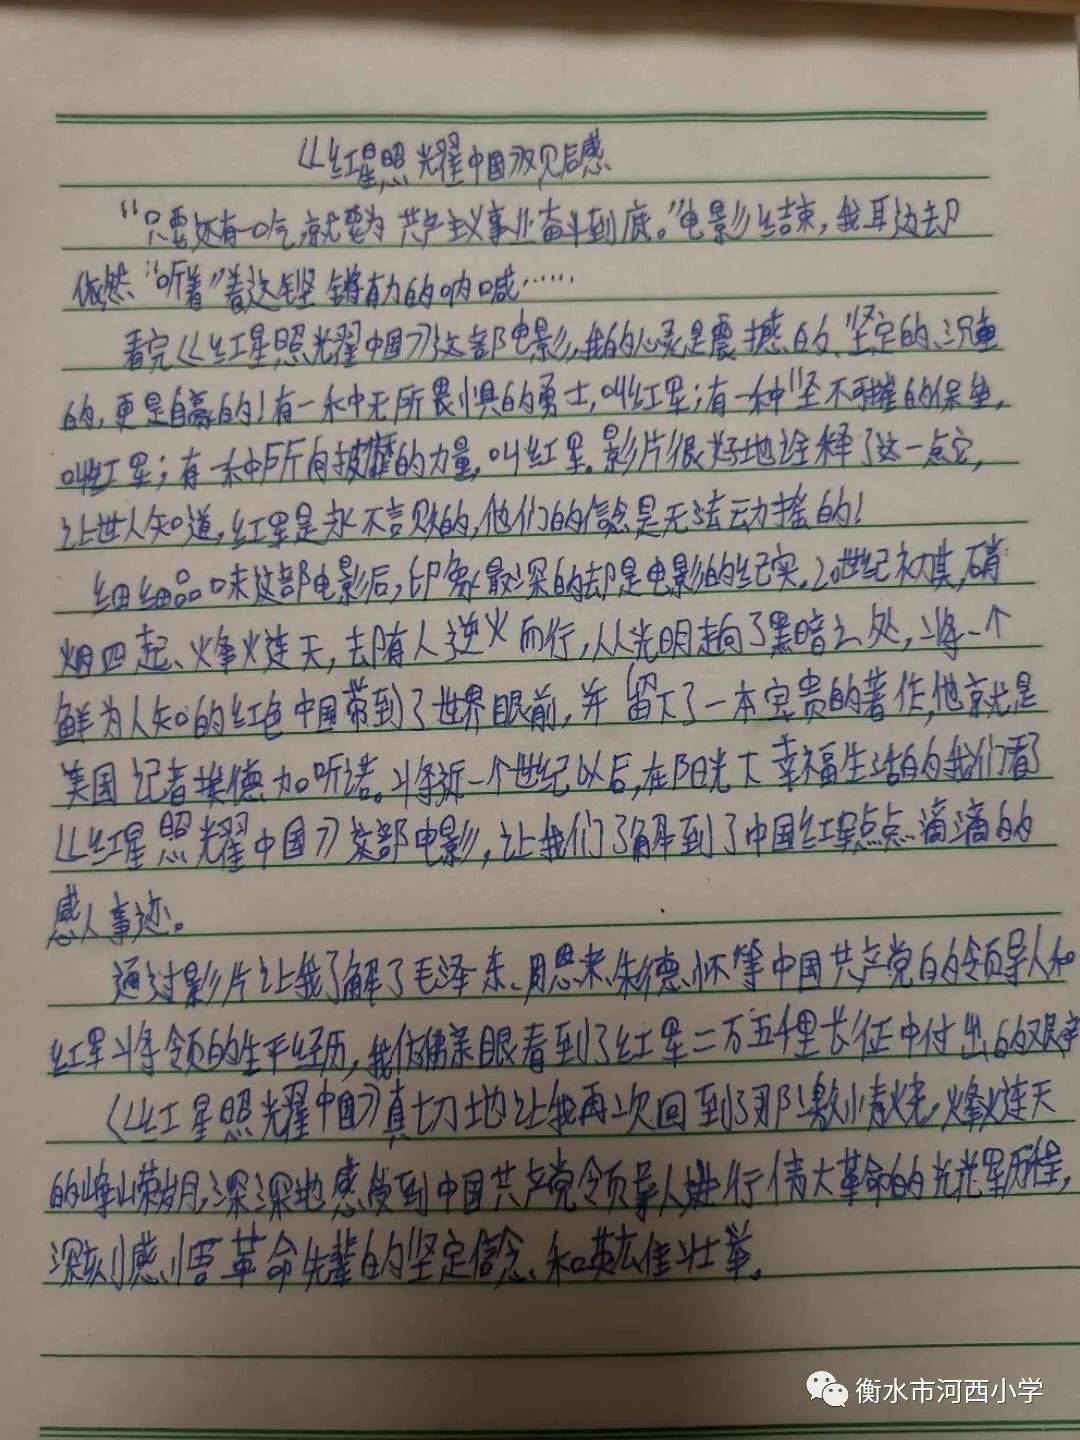 《红星照光耀中国》观后感
"只要还有一口气,就要为共产主义事业奋斗到底。"电影结束,我耳边却
依然"听着"着这铿锵有力的呐喊……
看完《红星照光耀中国》这部电影,我的心灵是震撼的、坚定的、沉重
的,更是自豪的!有一种无所畏惧的勇士,叫红军;有一种坚不可摧的保垒,
叫红军;有一种所向披靡的力量,叫红军。影片很好地诠释了这一点它,
让世人知道,红军是永不言败的,他们的信念是无法动摇的!
细细品味这部电影后,印象最深的却是电影的纪实。20世纪初期,硝
烟四起、烽火连天,却有人逆火而行,从光明走向了黑暗之处,将一个
鲜为人知的红色中国带到了世界眼前,并留下了一本宝贵的著作,他就是
美国记者埃德加斯诺。将近一个世纪以后,在阳光下幸福生活的我们看了
《红星照光耀中国》这部电影,让我们了解到了中国红军点点滴滴的
感人事迹。
通过影片让我了解了毛泽东、周恩来、朱德、怀等中国共产党的领导人和
红军将领的生平经历,我仿佛亲眼看到了红军二万五千里长征中付出的艰辛
《红星照光耀中国》真切地让我再次回到了那激情燃烧,烽火连天
的峥嵘岁月,深深地感受到中国共产党领导人进行伟大革命的光荣历程,
深刻感悟革命先辈的坚定信念、和英雄壮举。
衡水市河西小学